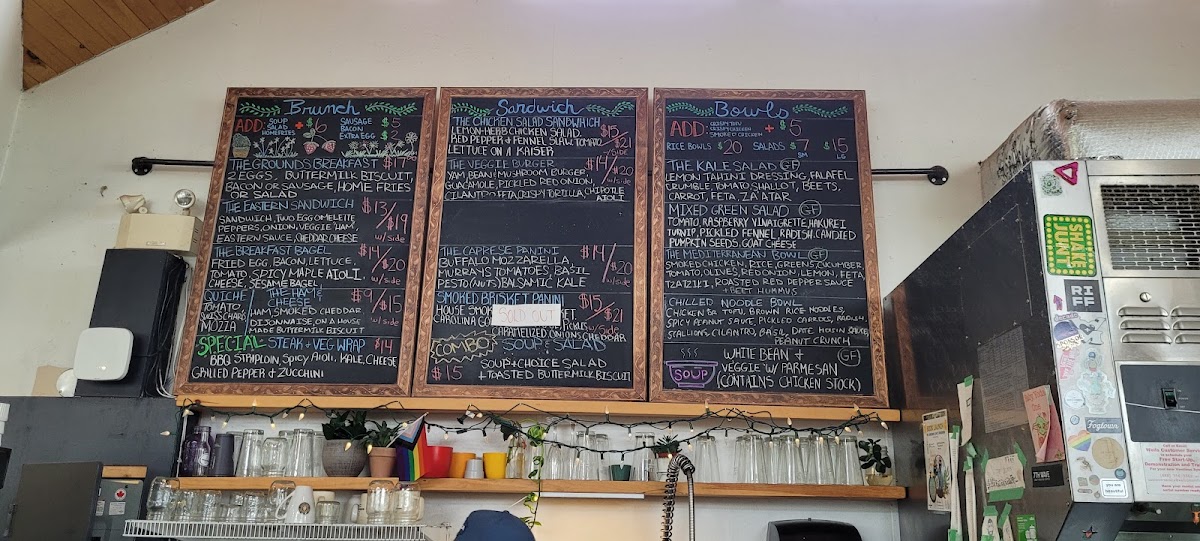 Brunch
ADD: SOUP SALAD HOMEFRIES + $6
SAUSAGE $5
BACON $5
EXTRA EGG $2
THE GROUNDS BREAKFAST $17
2 EGGS, BUTTERMILK BISCUIT,
BACON OR SAUSAGE, HOME FRIES
OR SALAD
THE EASTERN SANDWICH $13/$19 w/side
SANDWICH, TWO EGG OMELETTE
PEPPERS, ONION, VEGGIE HAM,
EASTERN SAUCE, CHEDDAR CHEESE
THE BREAKFAST BAGEL $14/$20 w/side
FRIED EGG, BACON, LETTUCE,
TOMATO, SPICY MAPLE AIOLI,
CHEESE, SESAME BAGEL,
QUICHE
TOMATO
SWISS CHARD
MOZZA
THE HAM &
CHEESE $9/$15 w/side
HAM, SMOKED CHEDDAR
DIJONNAISE ON A HOUSE
MADE BUTTERMILK BISCUIT
SPECIAL STEAK + VEG WRAP $14
BBQ STRIPLOIN, SPICY AIOLI, KALE, CHEESE
GRILLED PEPPER & ZUCCHINI
Sandwich
THE CHICKEN SALAD SANDWHICH $15/$21 w/side
LEMON-HERB CHICKEN SALAD
RED PEPPER + FENNEL SLAW, TOMATO
LETTUCE ON A KAISER
THE VEGGIE BURGER $14/$20 w/side
YAM, BEAN & MUSHROOM BURGER,
GUACAMOLE, PICKLED RED ONION,
CILANTRO FETA, CRISPY TORTILLA, CHIPOTLE
AIOLI
THE CAPRESE PANINI $14/$20 w/side
BUFFALO MOZZARELLA,
MURRAYS TOMATOES, BASIL
PESTO (NUTS) BALSAMIC KALE
SMOKED BRISKET PANINI $15/$21 w/side
HOUSE SMOK
SOLD OUT
CAROLINA GO PICKLES
CARAMELIZED ONIONS CHEDDAR
COMBO SOUP & SALAD
$15 SOUP + CHOICE SALAD
+ TOASTED BUTTERMILK BISCUIT
Bowls
ADD: CRISPY TOFU CRISPY CHICKEN SMOKED CHICKEN + $5
RICE BOWLS $20 SALADS $7 SM $15 LG
THE KALE SALAD GF
LEMON TAHINI DRESSING, FALAFEL
CRUMBLE, TOMATO, SHALLOT, BEETS,
CARROT, FETA, ZA'ATAR
MIXED GREEN SALAD GF
TOMATO, RASPBERRY VINAIGRETTE, HAKUREI
TURNIP, PICKLED FENNEL, RADISH, CANDIED
PUMPKIN SEEDS, GOAT CHEESE
THE MEDITERRANEAN BOWL GF
SMOKED CHICKEN, RICE, GREENS, CUCUMBER,
TOMATO, OLIVES, RED ONION, LEMON, FETA
TZATZIKI, ROASTED RED PEPPER SAUCE
+ BEET HUMMUS
CHILLED NOODLE BOWL
CHICKEN OR TOFU, BROWN RICE NOODLES,
SPICY PEANUT SAUCE, PICKLED CARROTS, RADISH,
SCALLIONS, CILANTRO, BASIL, DATE HOISIN SAUCE
PEANUT CRUNCH
SOUP
WHITE BEAN + GF
VEGGIE W/ PARMESAN
(CONTAINS CHICKEN STOCK)
SHAKE
JUNT
RIFF
Foglown
7TH WAVE